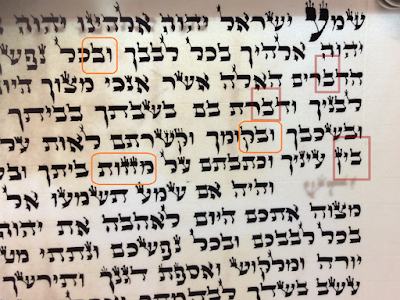 שמע ישראל יהוה אלהינו יהוה
יהוה אלהיך בכל לבבך ובכל נפש
הדברים האלה אשר אנכי מצוך היו
לבניך ודברת בם בשבתך בביתך
ובשכבך ובקומך וקשרתם לאות על
בין עיניך וכתבתם על מזזות ביתך ובש
והיה אם שמע תשמעו אל
מצוה אתכם היום לאהבה את יהוה
בכל לבבכם ובכל נפשכם ונתתי מט
יורה ומלקוש ואספת דגנך ותירשך
עשב בשדך לבהמתך